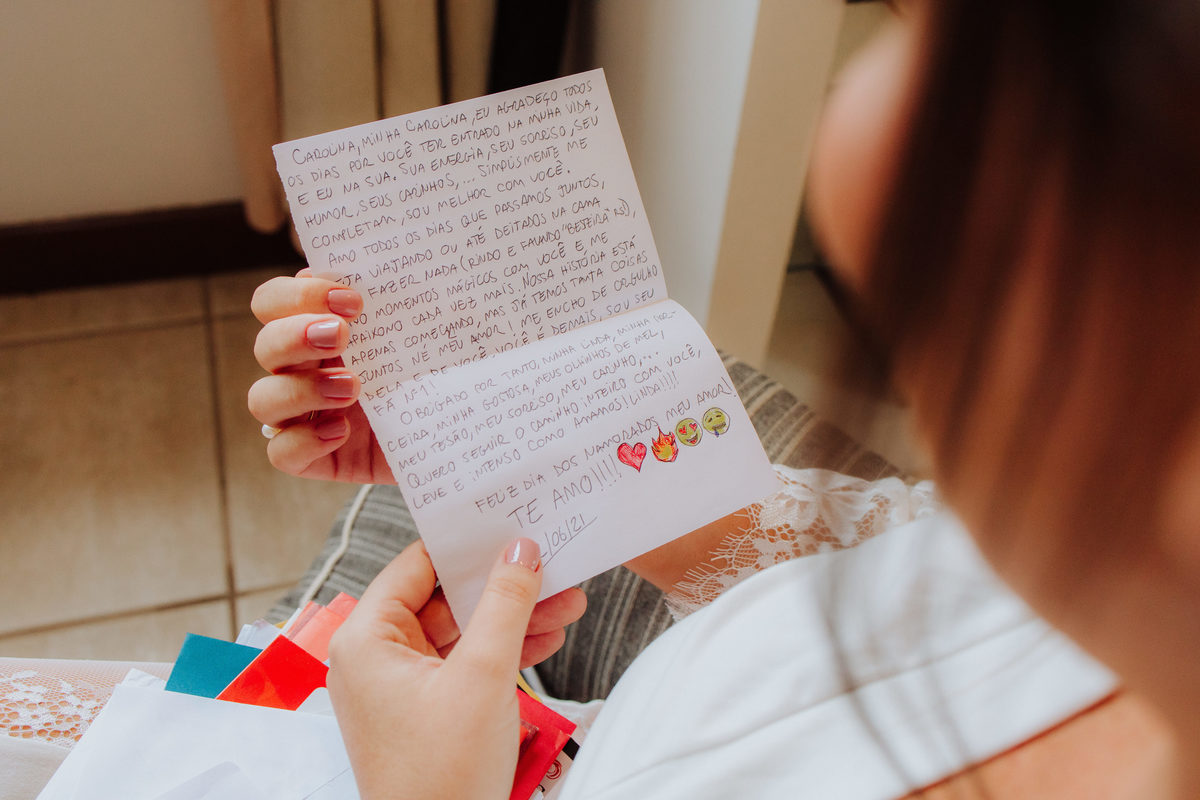 CAROLINA, MINHA CAROLINA, EU AGRADEÇO TODOS
OS DIAS POR VOCÊ TER ENTRADO NA MINHA VIDA,
E EU NA SUA. SUA ENERGIA, SEU SORRISO, SEU
HUMOR, SEUS CARINHOS,... SIMPLISMENTE ME
COMPLETAM, SOU MELHOR COM VOCÊ.
AMO TODOS OS DIAS QUE PASSAMOS JUNTOS,
VIAJANDO OU ATÉ DEITADOS NA CAMA
FAZER NADA (RINDO E FALANDO "BESTEIRA" RS)),
MOMENTOS MÁGICOS COM VOCÊ E, ME
APAIXONO CADA VEZ MAIS. NOSSA HISTÓRIA ESTÁ
APENAS COMEÇANDO, MAS JÁ TEMOS TANTA COISAS
JUNTOS NÉ MEU AMOR! ME ENCHO DE ORGULHO
DE VOCÊ, VOCÊ É DEMAIS, SOU SEU
FÃ Nº1!
OBRIGADO POR TANTO, MINHA LINDA, MINHA PAR-
CEIRA, MINHA GOSTOSA, MEUS OLHINHOS DE MEL,
MEU TESÃO, MEU SORRISO, MEU CARINHO,...
QUERO SEGUIR O CAMINHO INTEIRO COM VOCÊ,
LEVE E INTENSO COMO AMAMOS! LINDA!!!!
FELIZ DIA DOS NAMORADOS MEU AMOR!
TE AMO!!!!
/06/21